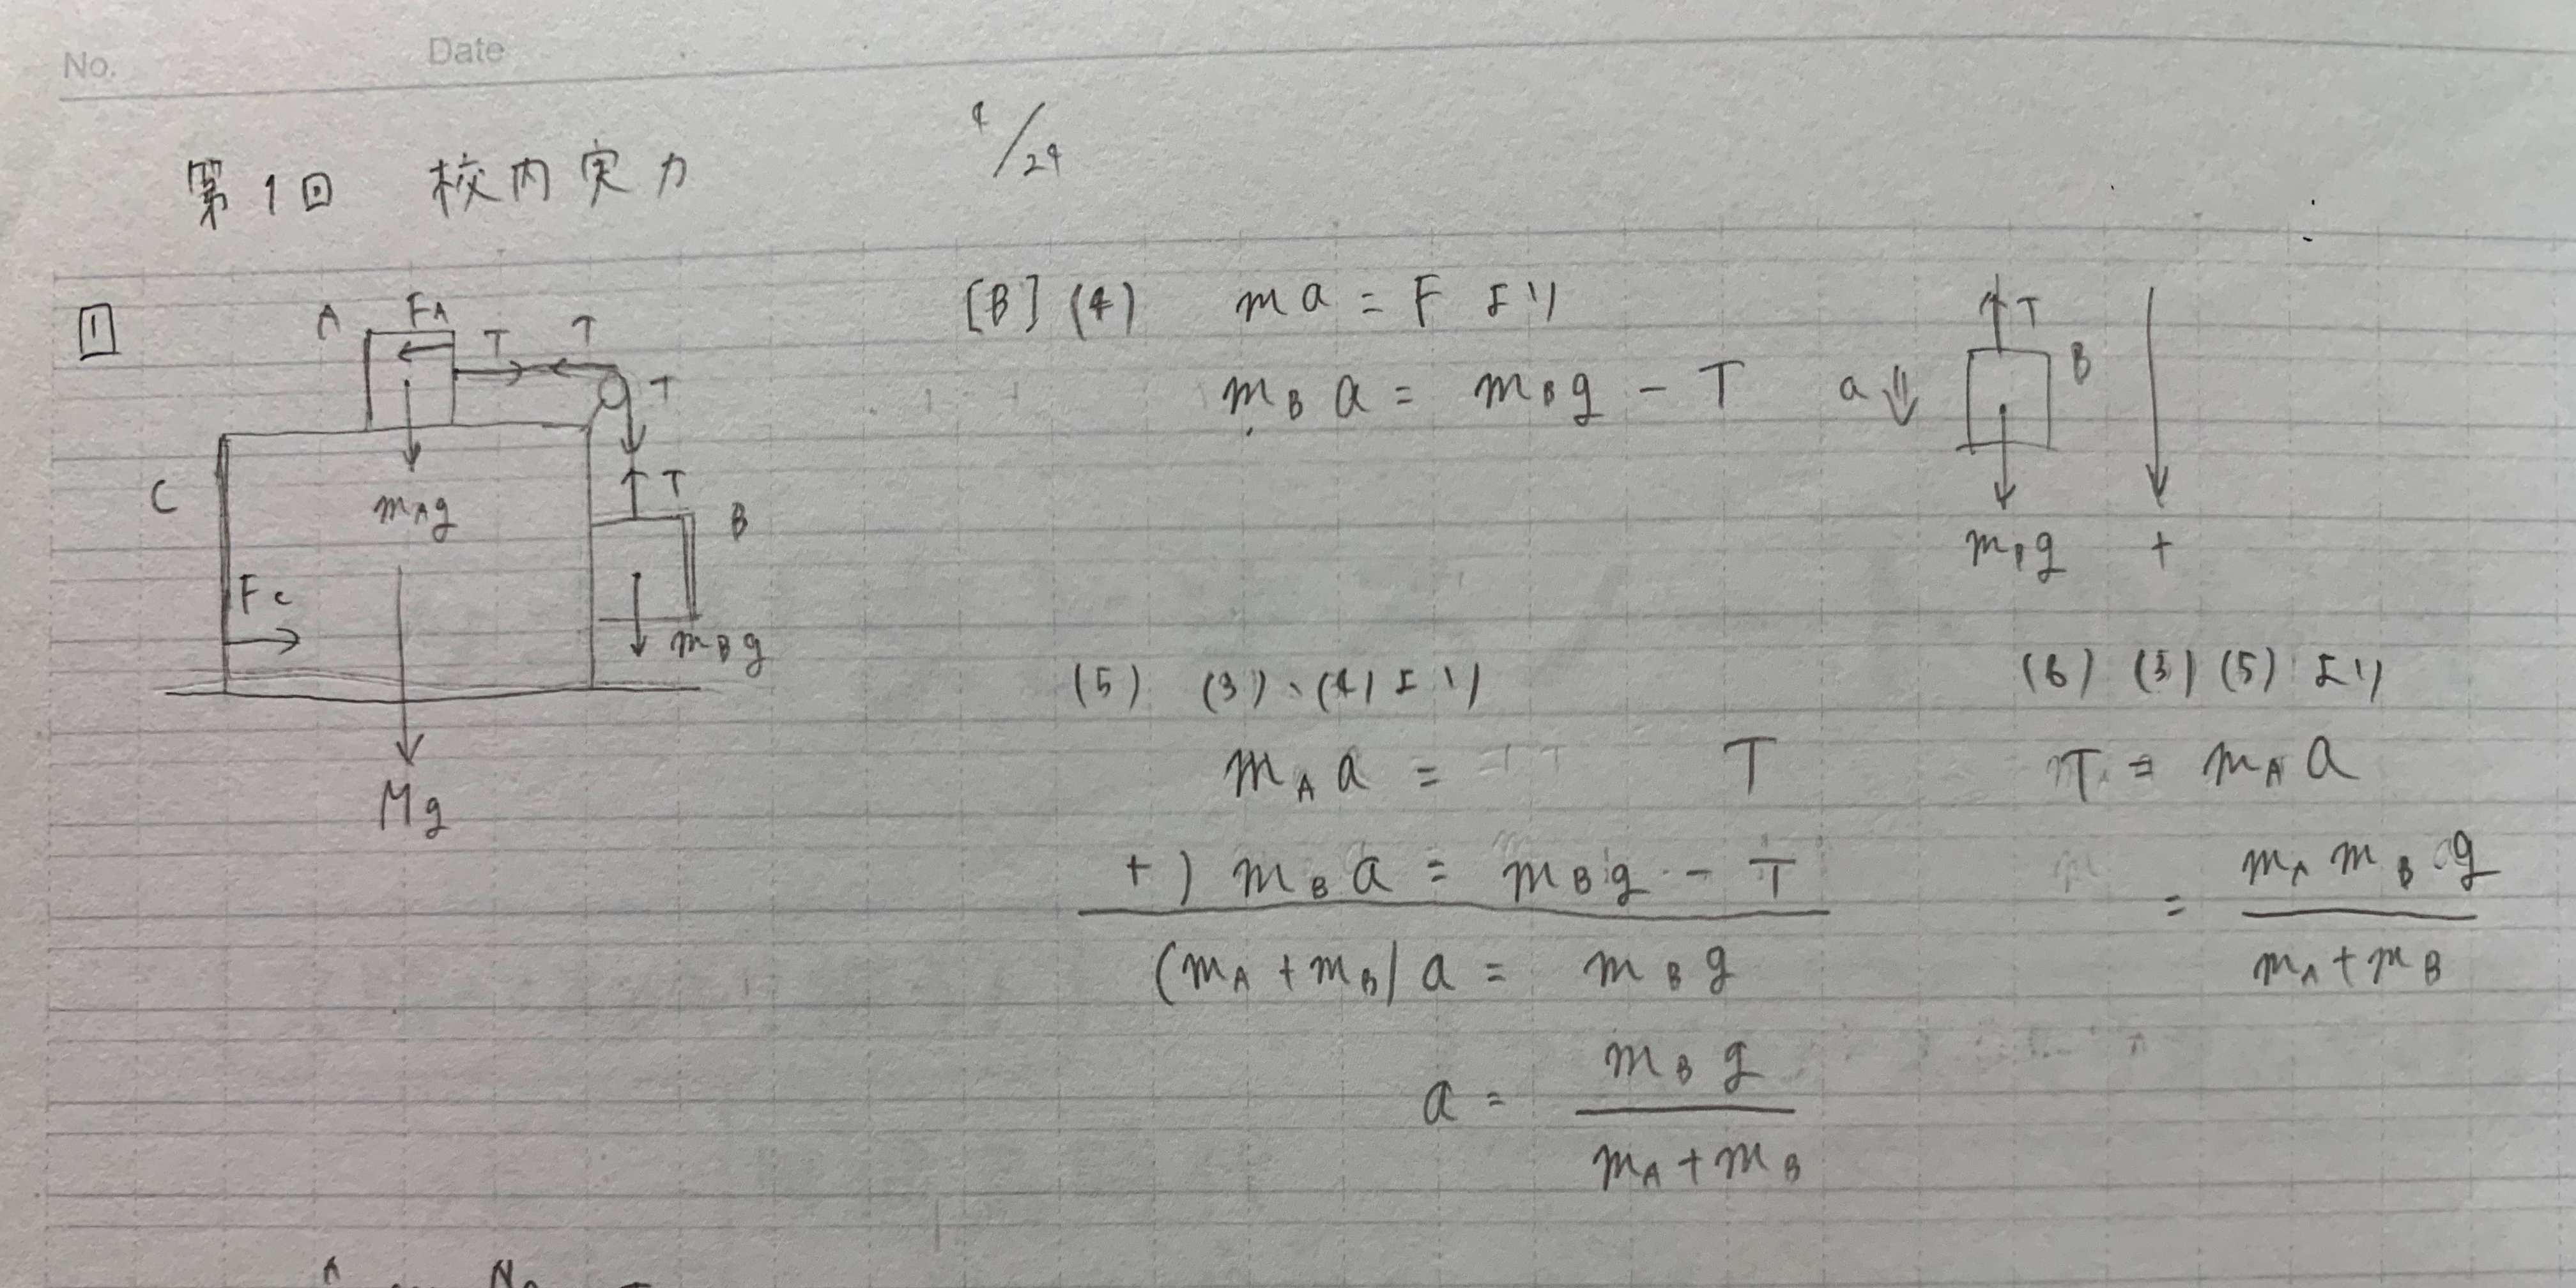 No.
Date
第1回 校内実力 4/24
1
A
FA
T
T
T
C
mAg
T
B
Fc
mBg
Mg
[B] (4) ma = F より
mB a = mBg - T
a
T
B
mBg
+
(5) (3)、(4)より
mA a = T
+) mB a = mBg - T
(mA + mB) a = mBg
a = mBg / mA + mB
(6) (3) (5) より
T = mA a
= mA mB g / mA + mB